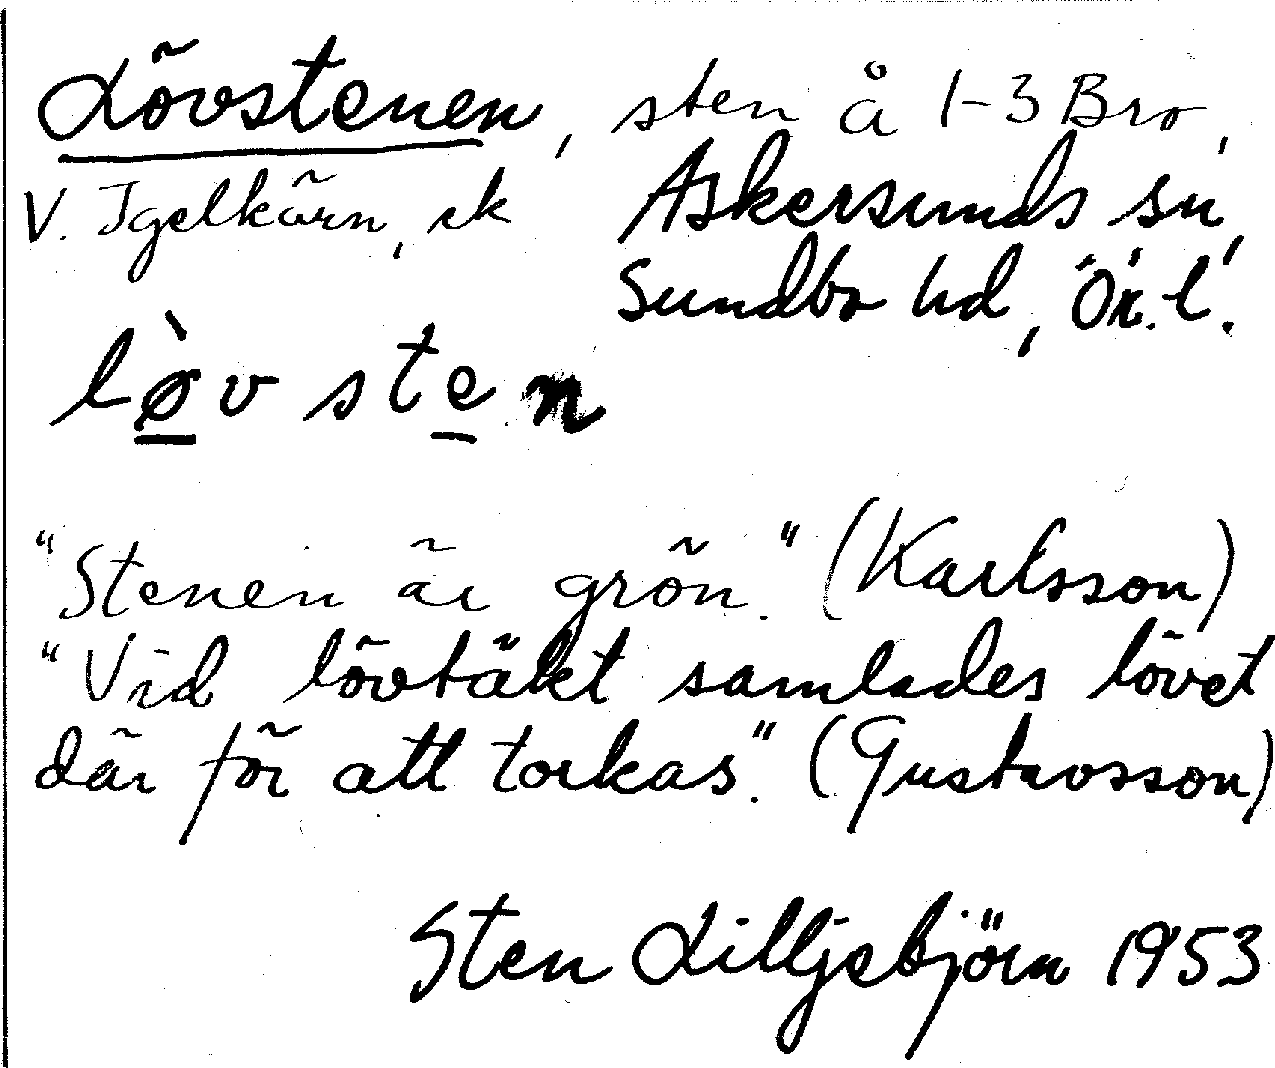 Lövstenen, sten å 1-3 Bro,
V. Igelkärn, ek Askersunds sn,
Sundbo hd, Ör. l.
lø̀vsten
"Stenen är grön." (Karlsson)
"Vid lövtäkt samlades lövet
där för att torkas." (Gustavsson)
Sten Lilljebjörn 1953